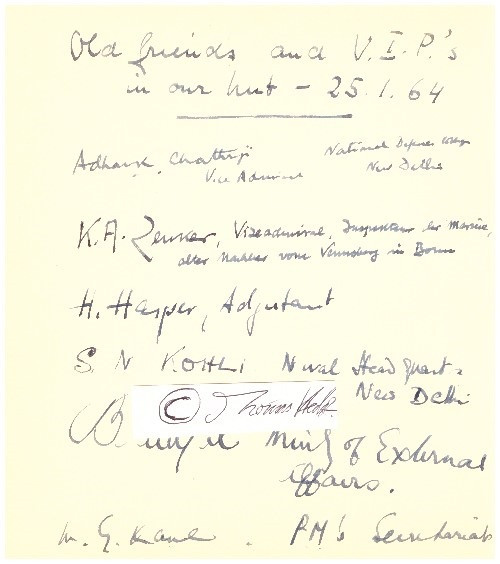 Old friends and V.I.P.'s
in our hut - 25.1.64
Adhar K. Chatterji National Defence College
Vice Admiral New Delhi
K.A. Zenker, Vizeadmiral, Inspekteur der Marine,
alter Nachbar vom Venusberg in Bonn
H. Hasper, Adjutant
S. N KOHLI Naval Headquart-
New Delhi
© Thomas
Min of External
Affairs.
PM's Secretariat